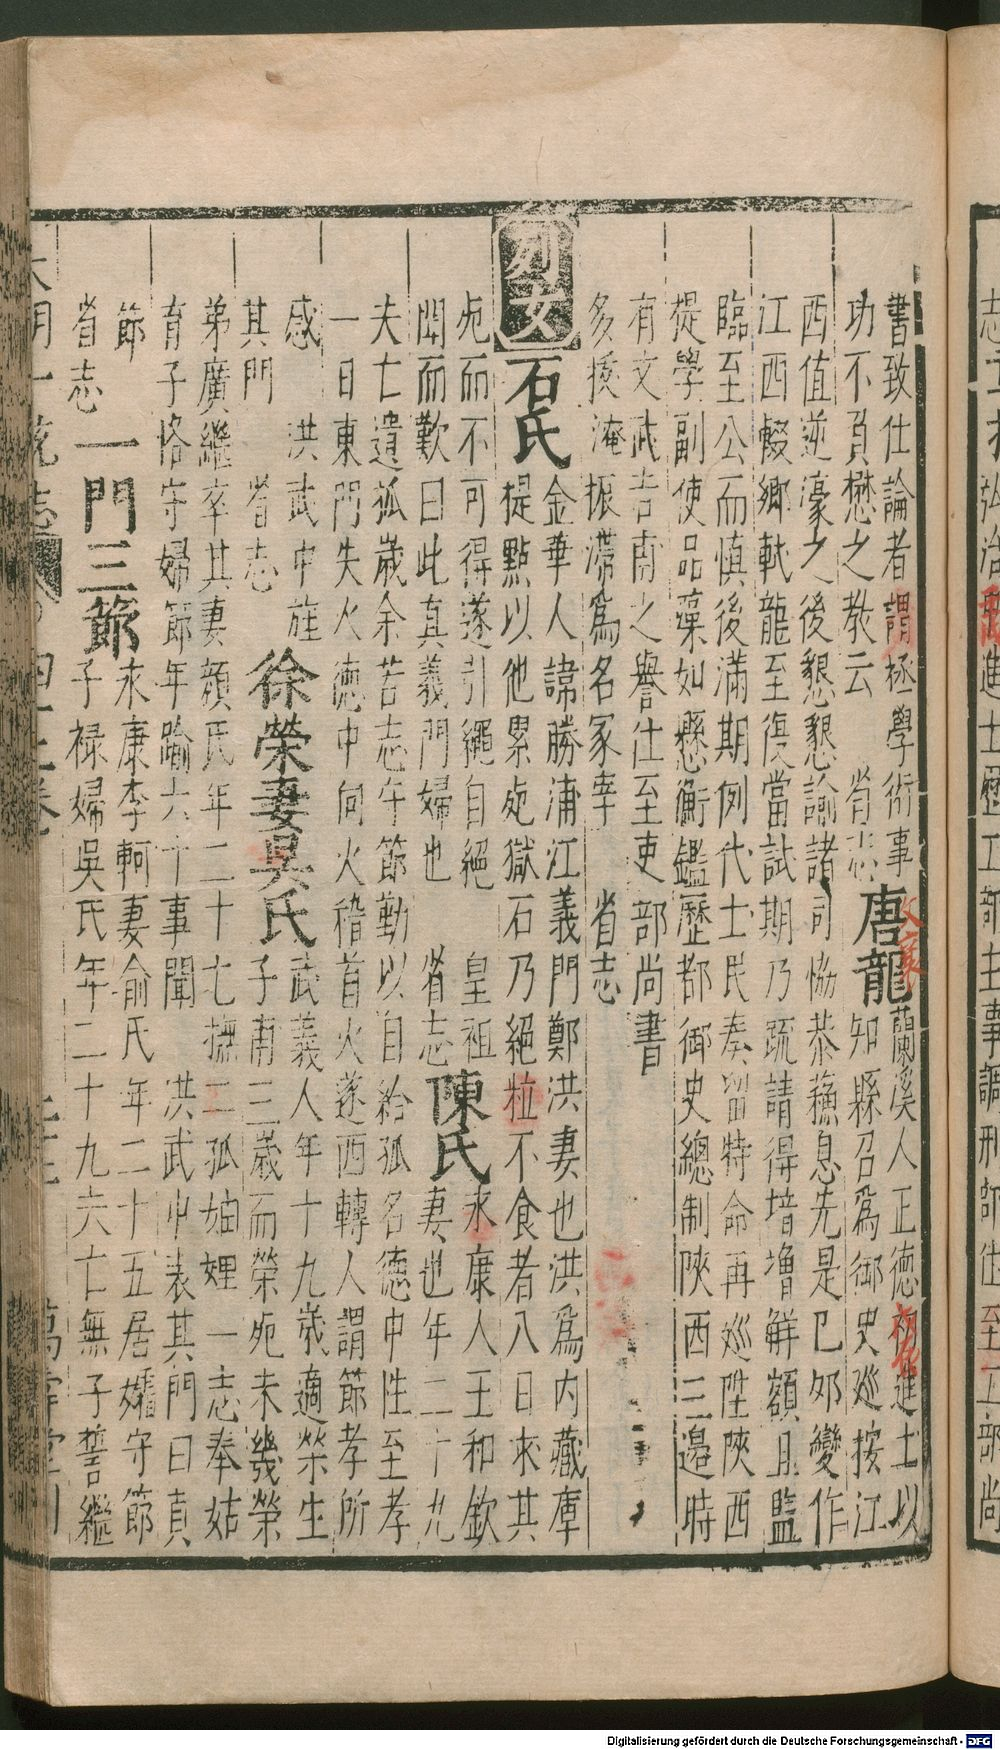 書致仕論者謂極學術事
功不負懋之教云　省志
唐龍
蘭溪人正德初進士以
知縣召為御史巡按江
西值逆濠之後懇懇諭諸司恊恭蘓息先是巳夘變作
江西輟鄉試龍至復當試期乃疏請得培增觧額且監
臨至公而慎後滿期例代士民奏留特命再巡陞陝西
提學副使品藻如懸衡鑑歷都御史總制陝西三邉時
有文武吉甫之譽仕至吏部尚書
多援淹振滯為名冢宰　省志
列女
石氏
金華人諱勝浦江義門鄭洪妻也洪為内藏庫
提點以他累死獄石乃絕粒不食者八日求其
死而不可得遂引繩自絕　皇祖
聞而歎曰此真義門婦也　省志
陳氏
永康人王和欽
妻也年二十九
夫亡遺孤歲余苦志守節勤以自給孤名德中性至孝
一日東門失火德中向火稽首火遂西轉人謂節孝所
感　洪武中旌
其門　省志
徐榮妻吳氏
武義人年十九歲適榮生
子甫三歲而榮死未幾榮
弟廣繼卒其妻顔氏年二十七撫二孤妯娌一志奉姑
育子恪守婦節年踰六十事聞　洪武中表其門曰貞
節
省志
一門三節
永康李軻妻俞氏年二十五居孀守節
子祿婦吳氏年二十九夫亡無子誓繼
大明一統志
四十二卷
二十三
萬壽堂刊
Digitalisierung gefördert durch die Deutsche Forschungsgemeinschaft - DFG